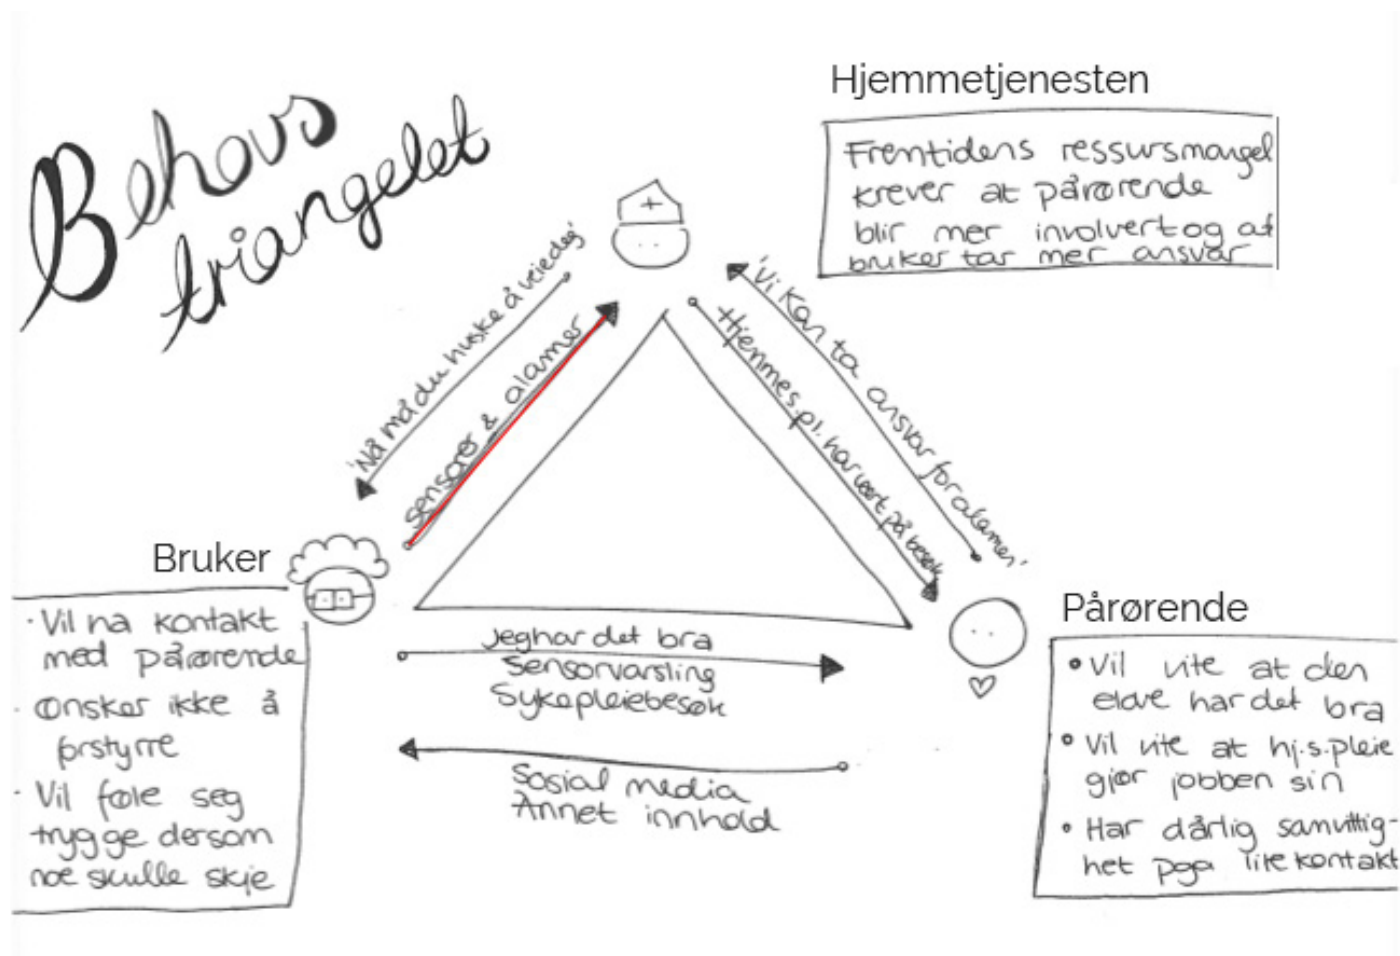 Behovs
triangelet
Hjemmetjenesten
Fremtidens ressursmangel
krever at pårørende
blir mer involvert og at
bruker tar mer ansvar
'Nå må du huske å veie deg'
Sensorer & alarmer
'Vi kan ta ansvar for alarmer'
Hjemmes.pl. har vært på besøk
Bruker
· Vil nå kontakt
med pårørende
· Ønsker ikke å
forstyrre
· Vil føle seg
trygge dersom
noe skulle skje
Jeg har det bra
Sensorvarsling
Sykepleiebesøk
Sosial media
Annet innhold
Pårørende
• Vil vite at den
eldre har det bra
• Vil vite at hj.s.pleie
gjør jobben sin
• Har dårlig samvittig-
het pga lite kontakt